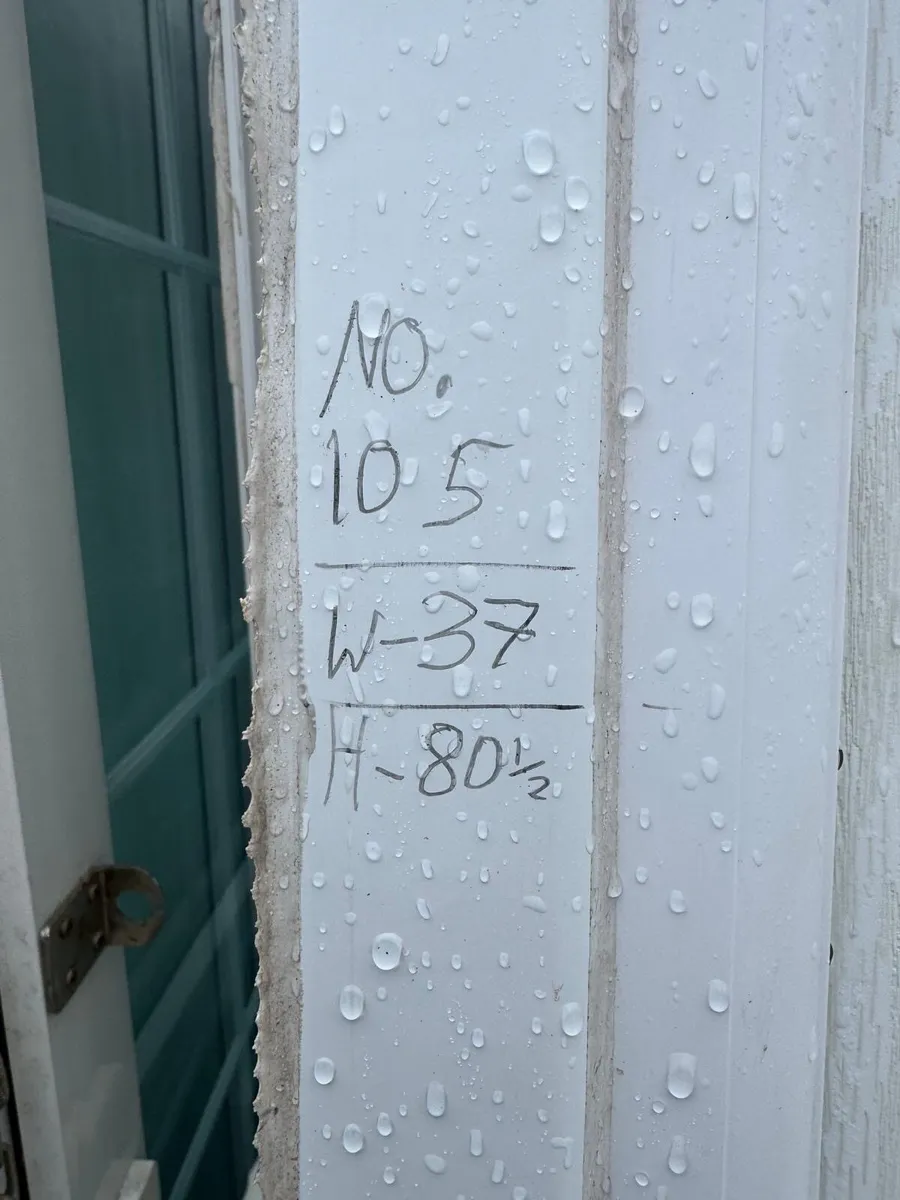 NO.
105
W-37
H-80 1/2